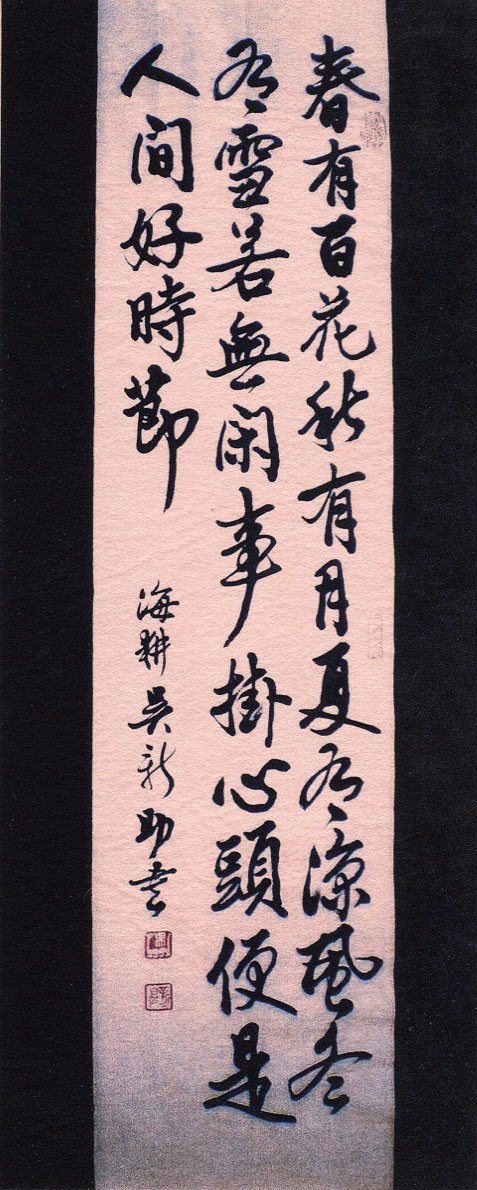 春有百花秋有月夏有凉風冬
有雪若無閑事掛心頭便是
人間好時節
海耕吳新助書